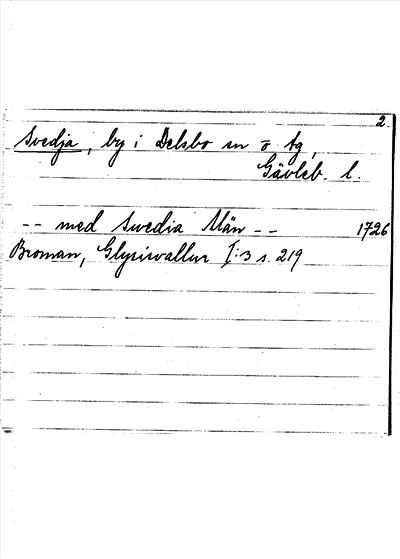 2.
Svedja, by i Delsbo sn o tg,
Gävleb. l.
-- med Swedia Män -- 1726
Broman, Glysisvallur I:3 s. 219